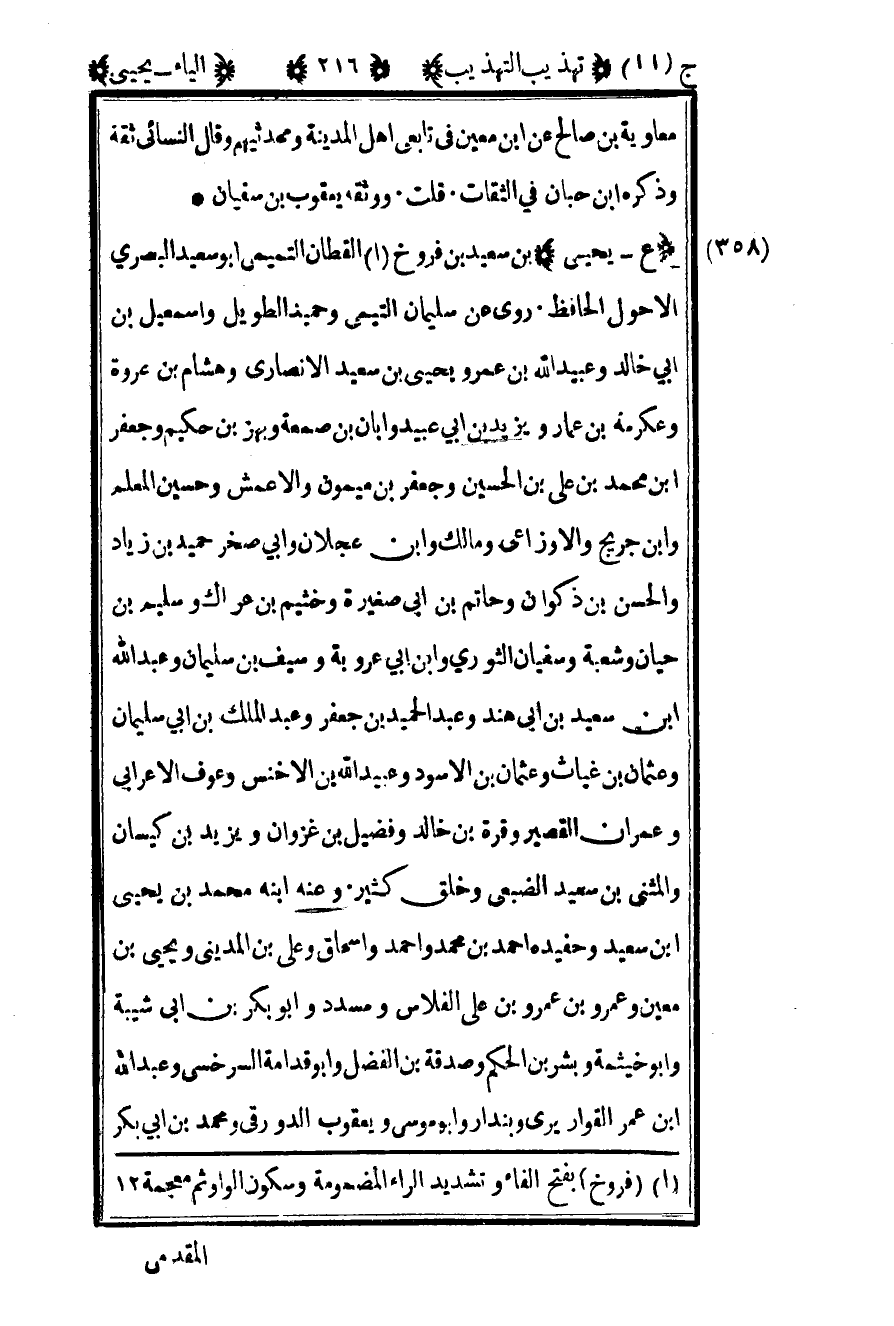 ج (١١) ﴿ تهذيب التهذيب ﴾ ﴿ ٢١٦ ﴾ ﴿ الياء ـ يحيى ﴾
معاوية بن صالح عن ابن معين في تابعى اهل المدينة ومحدثيهم وقال النسائى ثقة
وذكره ابن حبان في الثقات · قلت · ووثقه يعقوب بن سفيان *
(٣٥٨) ﴿ ع ـ يحيى ﴾ بن سعيد بن فروخ (١) القطان التميمى ابو سعيد البصري
الاحول الحافظ · روى عن سليمان التيمى وحميد الطويل واسمعيل بن
ابي خالد وعبيدالله بن عمرو يحيى بن سعيد الانصارى وهشام بن عروة
وعكرمة بن عمار و يزيد بن ابي عبيد وابان بن صمعة وبهز بن حكيم وجعفر
ابن محمد بن على بن الحسين وجعفر بن ميمون والاعمش وحسين المعلم
وابن جريج والاوزاعى ومالك وابن عجلان وابي صخر حميد بن زياد
والحسن بن ذكوان وحاتم بن ابى صغيرة وخثيم بن عراك و سليم بن
حيان وشعبة وسفيان الثوري وابن ابي عروبة و سيف بن سليمان وعبدالله
ابن سعيد بن ابى هند وعبدالحميد بن جعفر وعبد الملك بن ابي سليمان
وعثمان بن غياث وعثمان بن الاسود وعبيدالله بن الاخنس وعوف الاعرابى
و عمران القصير وقرة بن خالد وفضيل بن غزوان و يزيد بن كيسان
والمثنى بن سعيد الضبعى وخلق كثير · وعنه ابنه محمد بن يحيى
ابن سعيد وحفيده احمد بن محمد واحمد واسحاق وعلى بن المدينى ويحيى بن
معين وعمرو بن عمرو بن على الفلاس و مسدد و ابو بكر بن ابى شيبة
وابو خيثمة و بشر بن الحكم وصدقة بن الفضل وابو قدامة السرخسى وعبدالله
ابن عمر القواريرى وبندار وابوموسى و يعقوب الدورقى ومحمد بن ابي بكر
(١) (فروخ) بفتح الفاء و تشديد الراء المضمومة وسكون الواو ثم معجمة ١٢
المقدمى